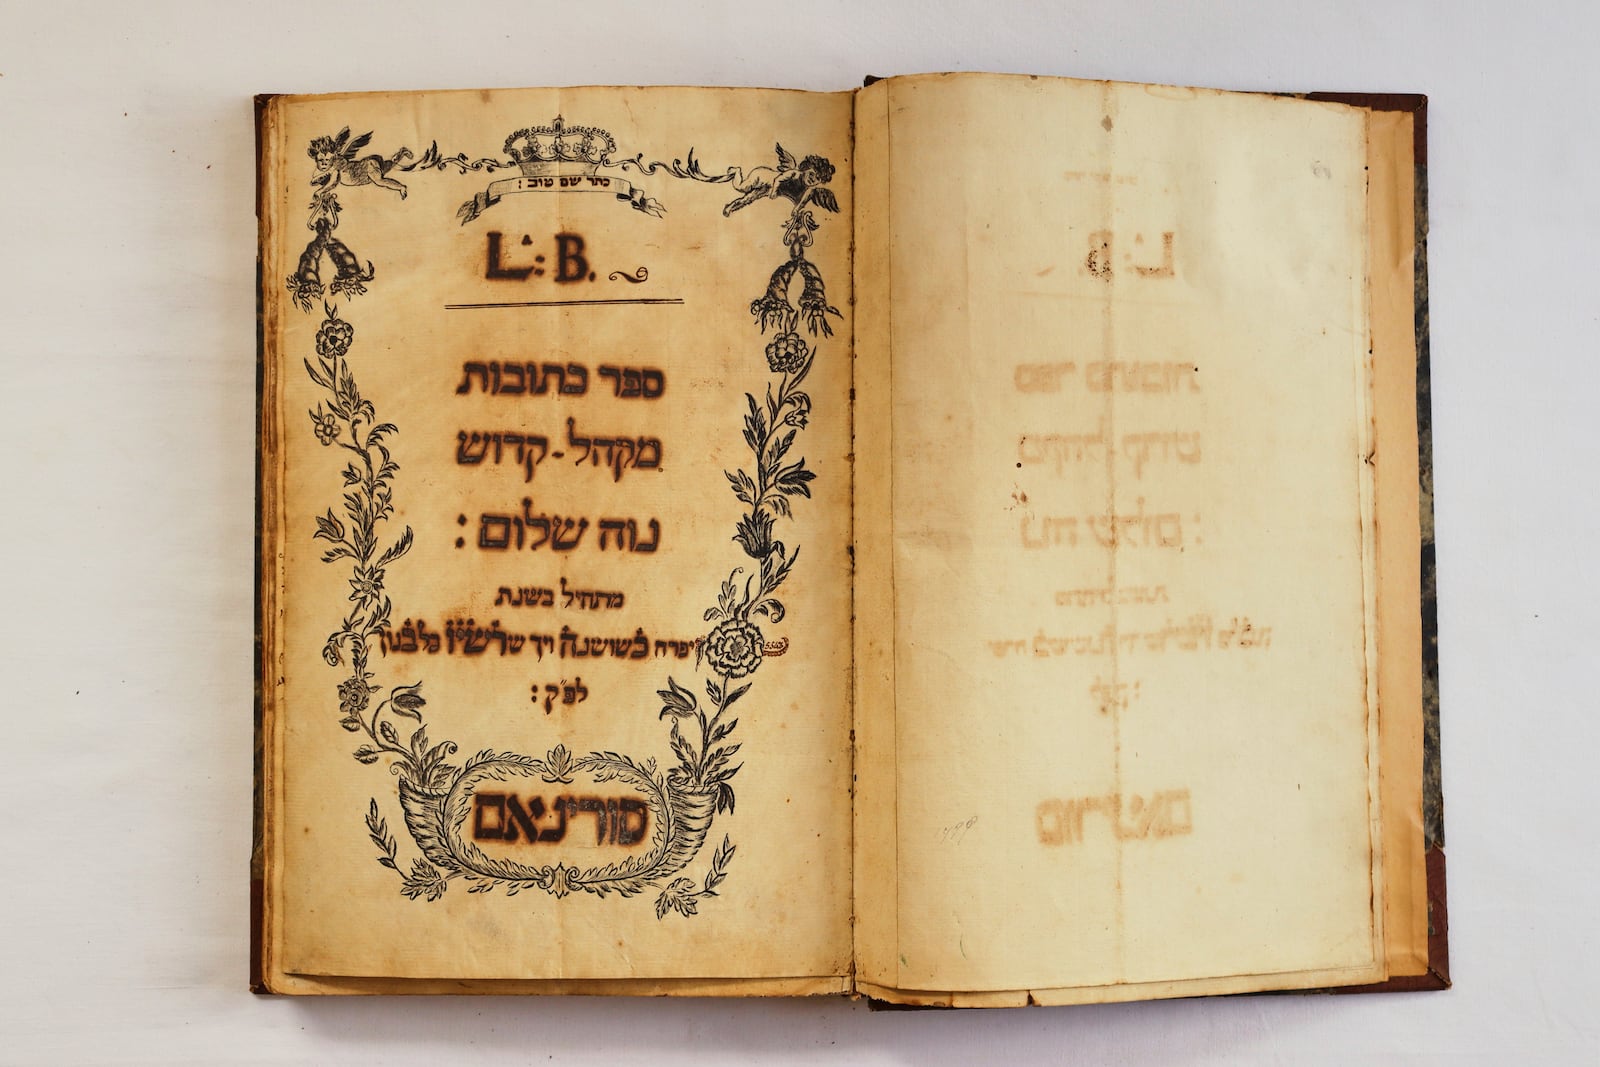 כתר שם טוב :
L : B.
ספר כתובות
מקהל - קדוש
נוה שלום :
מתחיל בשנת
יפרח כשושנה ויך שרשיו כלבנון
לפ״ק :
סורינאם